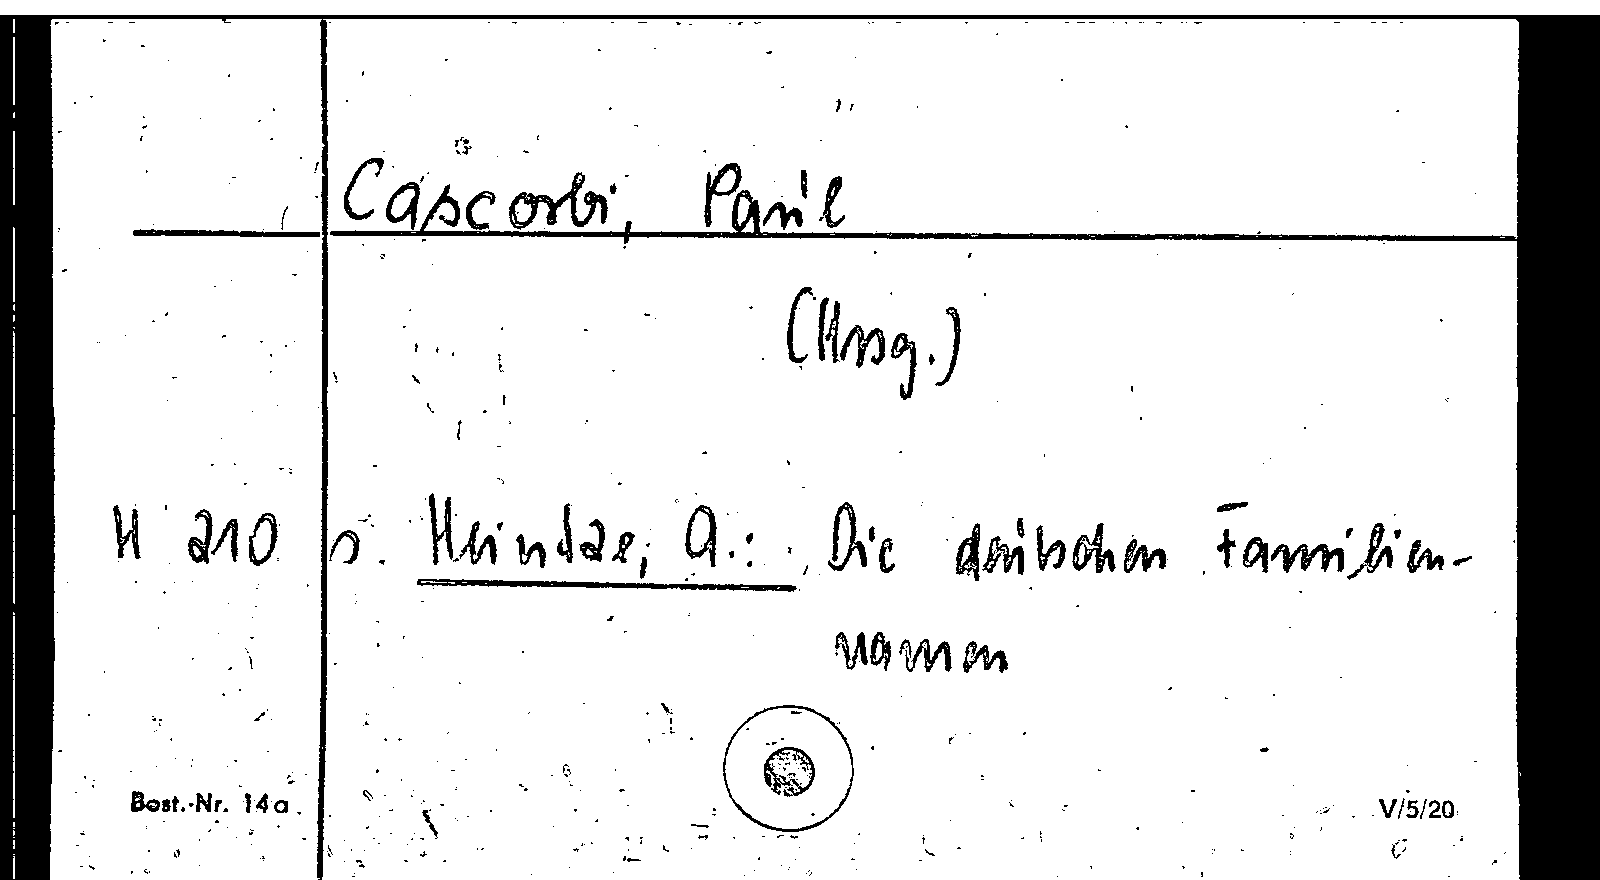 Cascorbi, Paul
(Hrsg.)
H 210 s. Heintze, A.: Die deutschen Familien-
namen
Best.-Nr. 14a
V/5/20